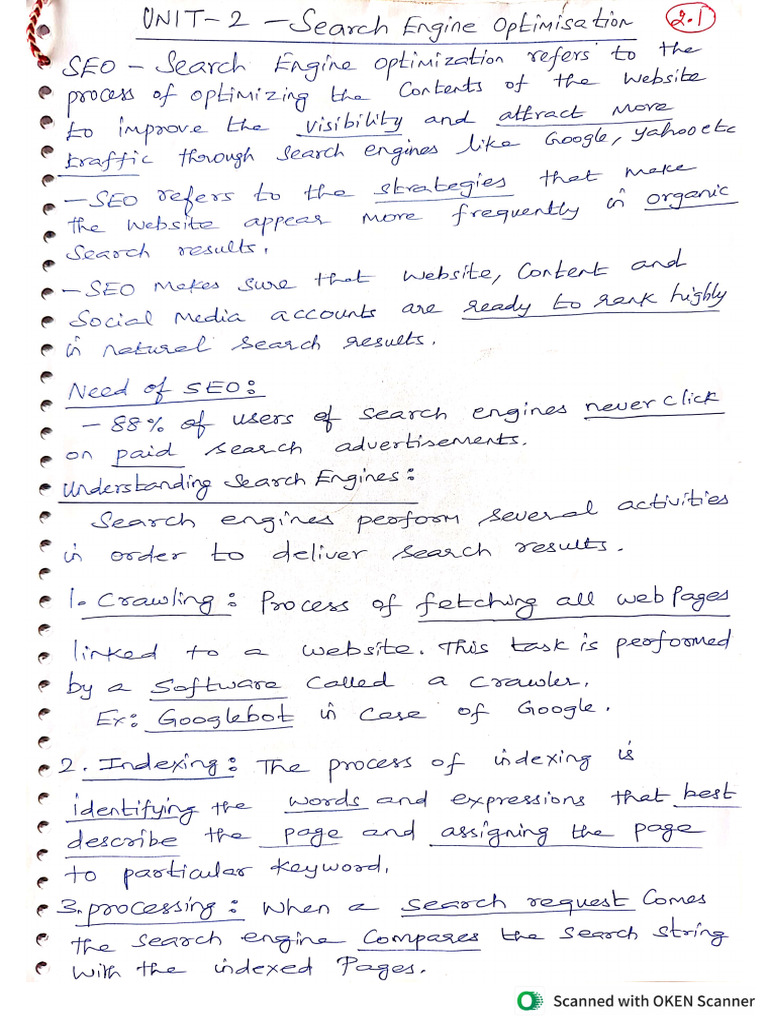 UNIT-2 - Search Engine Optimisation 2.1
SEO - Search Engine optimization refers to the
process of optimizing the Contents of the Website
to improve the visibility and attract more
traffic through search engines like Google, yahoo etc
- SEO refers to the strategies that make
the website appear more frequently in organic
search results.
- SEO makes sure that website, content and
Social Media accounts are ready to rank highly
in natural search results.
Need of SEO:
- 88% of users of search engines never click
on paid search advertisements.
Understanding Search Engines:
Search engines perform several activities
in order to deliver search results.
1. Crawling: Process of fetching all web Pages
linked to a website. This task is performed
by a Software called a crawler.
Ex: Googlebot in case of Google.
2. Indexing: The process of indexing is
identifying the words and expressions that best
describe the page and assigning the page
to particular keyword.
3. processing: When a search request Comes
the search engine Compares the search string
with the indexed Pages.
Scanned with OKEN Scanner